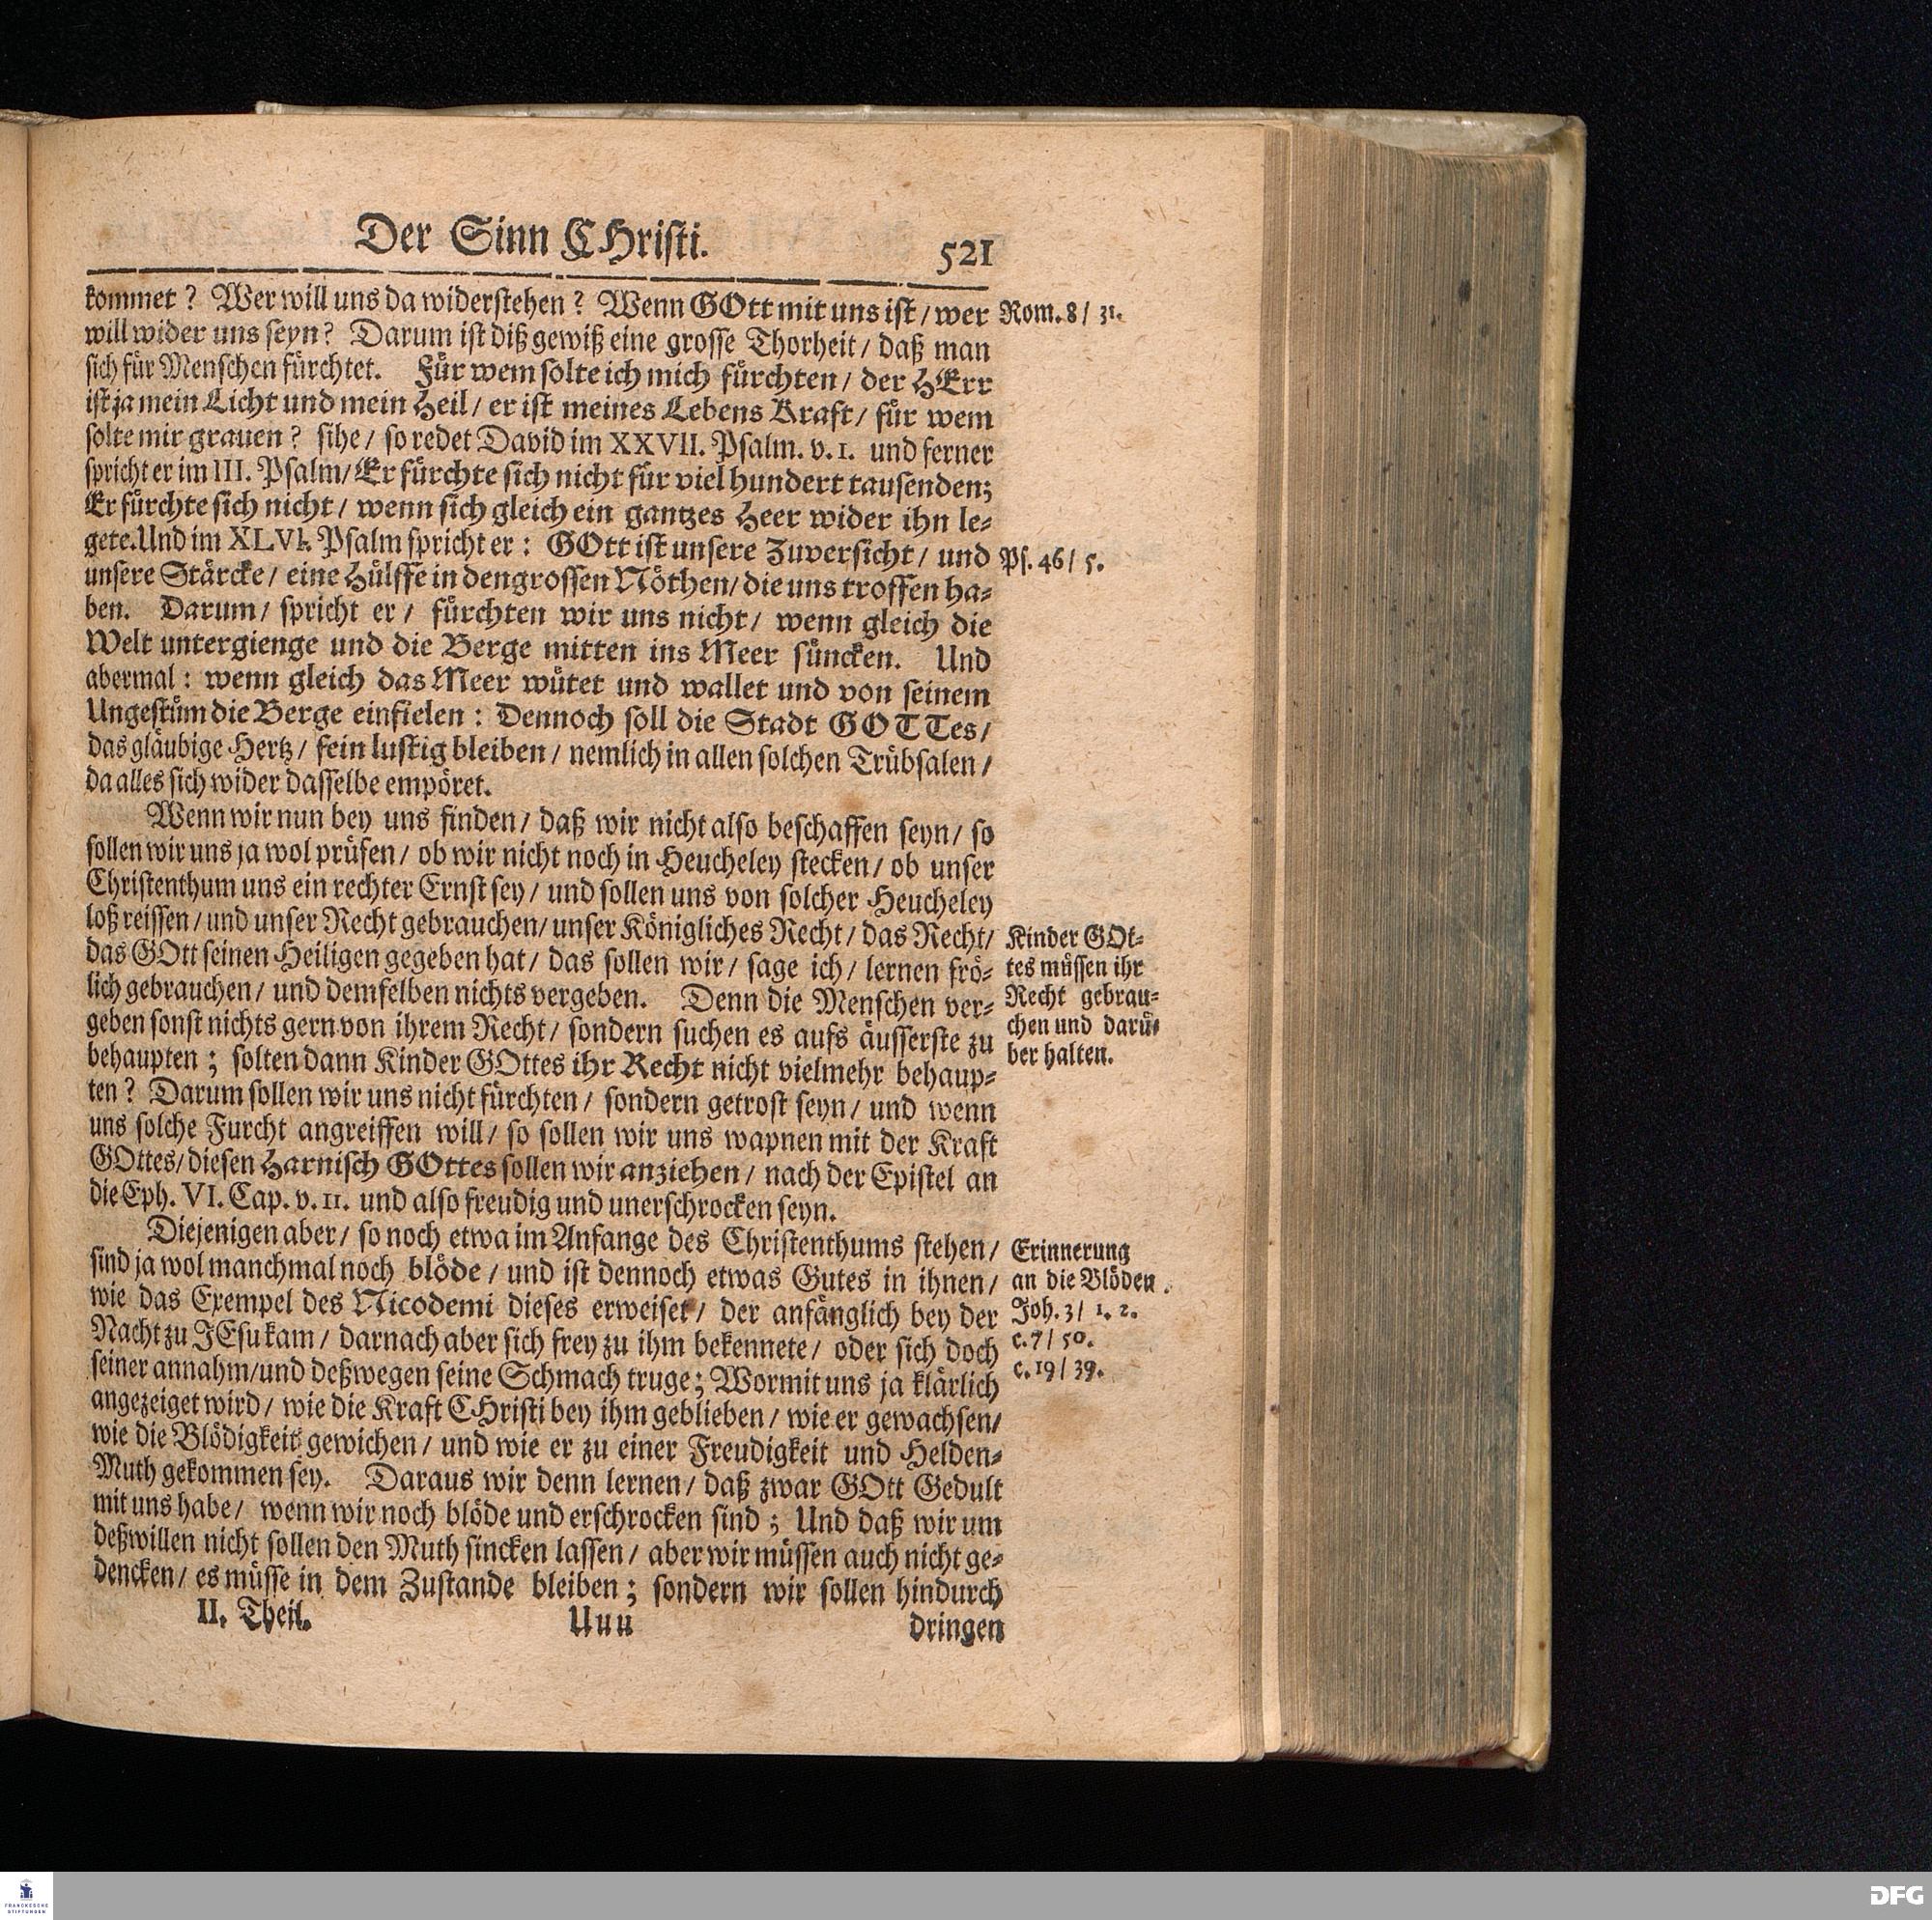 Der Sinn CHristi. 521
kommet? Wer will uns da widerstehen? Wenn GOtt mit uns ist/ wer
Rom. 8/ 31.
will wider uns seyn? Darum ist diß gewiß eine grosse Thorheit/ daß man
sich für Menschen fürchtet. Für wem solte ich mich fürchten/ der HErr
ist ja mein Licht und mein Heil/ er ist meines Lebens Kraft/ für wem
solte mir grauen? sihe/ so redet David im XXVII. Psalm. v. 1. und ferner
spricht er im III. Psalm/ Er fürchte sich nicht für viel hundert tausenden;
Er fürchte sich nicht/ wenn sich gleich ein gantzes Heer wider ihn le-
gete. Und im XLVI. Psalm spricht er: GOtt ist unsere Zuversicht/ und
Ps. 46/ 5.
unsere Stärcke/ eine Hülffe in den grossen Nöthen/ die uns troffen ha-
ben. Darum/ spricht er/ fürchten wir uns nicht/ wenn gleich die
Welt untergienge und die Berge mitten ins Meer süncken. Und
abermal: wenn gleich das Meer wütet und wallet und von seinem
Ungestüm die Berge einfielen: Dennoch soll die Stadt GOTTes/
das gläubige Hertz/ fein lustig bleiben/ nemlich in allen solchen Trübsalen/
da alles sich wider dasselbe empöret.
Wenn wir nun bey uns finden/ daß wir nicht also beschaffen seyn/ so
sollen wir uns ja wol prüfen/ ob wir nicht noch in Heucheley stecken/ ob unser
Christenthum uns ein rechter Ernst sey/ und sollen uns von solcher Heucheley
loß reissen/ und unser Recht gebrauchen/ unser Königliches Recht/ das Recht/
das GOtt seinen Heiligen gegeben hat/ das sollen wir/ sage ich/ lernen frö-
lich gebrauchen/ und demselben nichts vergeben. Denn die Menschen ver-
geben sonst nichts gern von ihrem Recht/ sondern suchen es aufs äusserste zu
behaupten; solten dann Kinder GOttes ihr Recht nicht vielmehr behaup-
ten? Darum sollen wir uns nicht fürchten/ sondern getrost seyn/ und wenn
uns solche Furcht angreiffen will/ so sollen wir uns wapnen mit der Kraft
GOttes/ diesen Harnisch GOttes sollen wir anziehen/ nach der Epistel an
die Eph. VI. Cap. v. 11. und also freudig und unerschrocken seyn.
Kinder GOt-
tes müssen ihr
Recht gebrau-
chen und darü-
ber halten.
Diejenigen aber/ so noch etwa im Anfange des Christenthums stehen/
sind ja wol manchmal noch blöde/ und ist dennoch etwas Gutes in ihnen/
wie das Exempel des Nicodemi dieses erweiset/ der anfänglich bey der
Nacht zu JEsu kam/ darnach aber sich frey zu ihm bekennete/ oder sich doch
seiner annahm/ und deßwegen seine Schmach truge; Wormit uns ja klärlich
angezeiget wird/ wie die Kraft CHristi bey ihm geblieben/ wie er gewachsen/
wie die Blödigkeit gewichen/ und wie er zu einer Freudigkeit und Helden-
Muth gekommen sey. Daraus wir denn lernen/ daß zwar GOtt Gedult
mit uns habe/ wenn wir noch blöde und erschrocken sind; Und daß wir um
deßwillen nicht sollen den Muth sincken lassen/ aber wir müssen auch nicht ge-
dencken/ es müsse in dem Zustande bleiben; sondern wir sollen hindurch
Erinnerung
an die Blöden.
Joh. 3/ 1. 2.
c. 7/ 50.
c. 19/ 39.
II. Theil. Uuu dringen
FRANCKESCHE
STIFTUNGEN
DFG